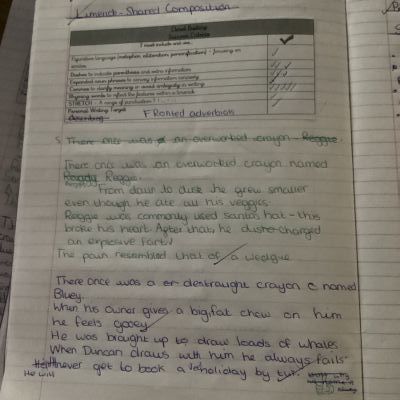 Limerick - Shared Composition
Close Reading
Success Criteria
I must include and use...
Figurative language (metaphor, alliteration, personification) - focusing on
senses.
Dashes to indicate parenthesis and extra information
Expanded noun phrases to convey information concisely
Commas to clarify meaning or avoid ambiguity in writing
Rhyming words to reflect the features within a limerick
STRETCH - A range of punctuation ? ! ... ; :
Personal Writing Target
FRonted adverbials
S. There once was an overworked crayon - Reggie.
There once was an overworked crayon named
Reggie.
From dawn to dusk he grew smaller
even though he ate all his veggies.
Reggie was commonly used santas hat - this
broke his heart. After that, he discharged
an explosive fart!
The pain resembled that of a wedgie
There once was a destraught crayon named
Bluey.
When his owner gives a big fat chew on hum
he feels gooey
He was brought up to draw loads of whales
When Duncan draws with hum he always fails
He will never get to book a holiday by